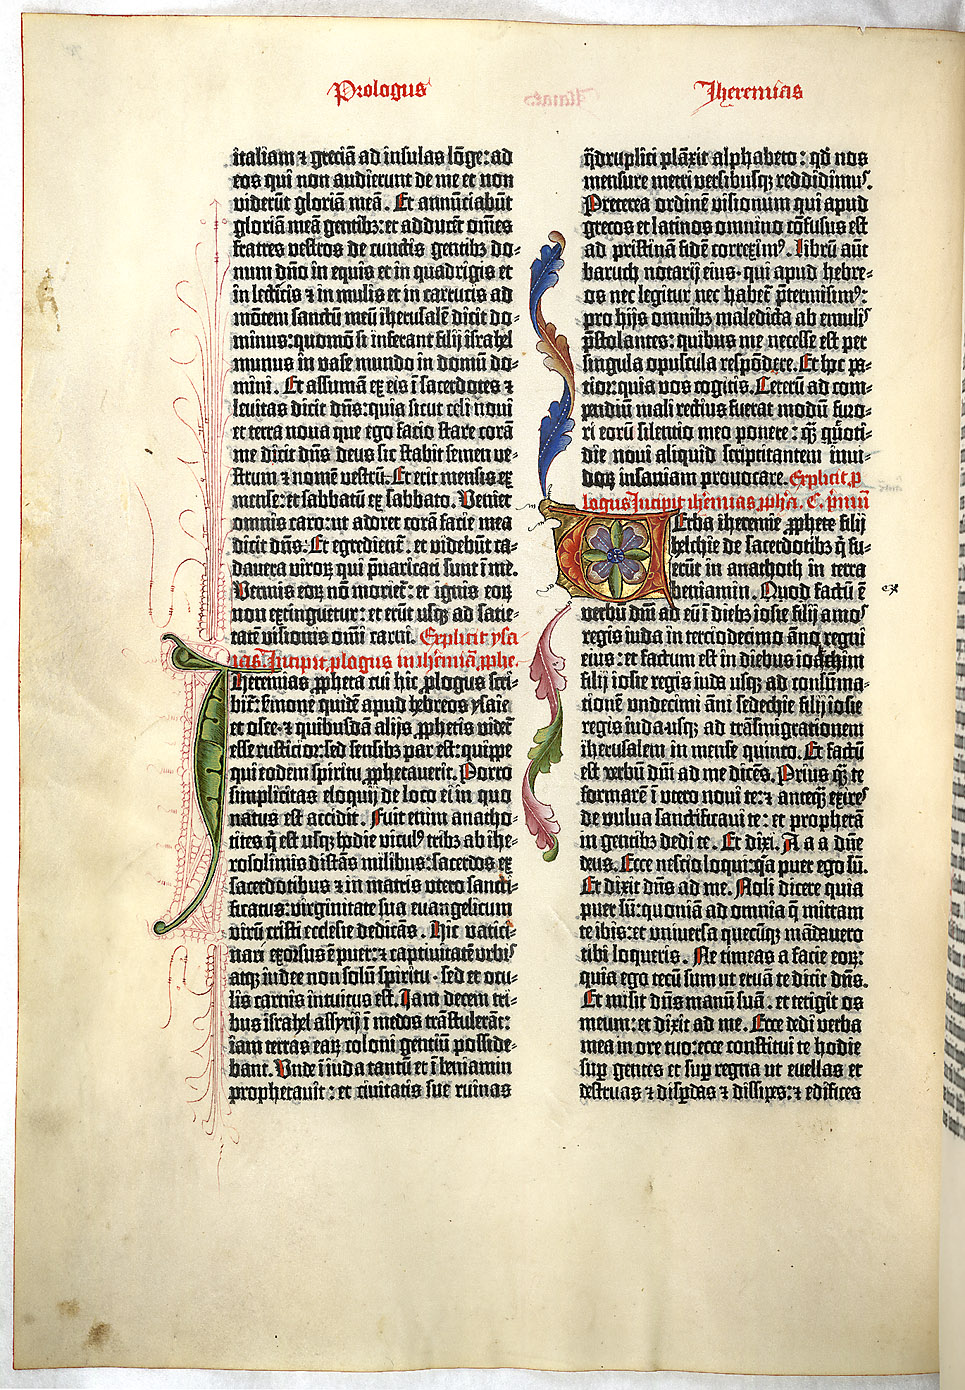 Prologus
Jheremias
italiam ⁊ greciā ad insulas lōge: ad
eos qui non audierunt de me et non
viderūt gloriā meā. Et annūciabūt
gloriā meā gentibꝫ: et adducēt om̄es
fratres vestros de cunctis gentibꝫ do-
num dn̄o in equis et in quadrigis et
in lecticis ⁊ in mulis et in carrucis ad
mōtem sanctū meū iherusalē dicit do-
minus: quomō si inferant filij israhel
munus in vase mundo in domū do-
mini. Et assumā ex eis ī sacerdotes ⁊
levitas dicit dn̄s: quia sicut celi noui
et terra noua que ego facio stare corā
me dicit dn̄s deus sic stabit semen ve-
strum ⁊ nomē vestrū. Et erit mensis ex
mense: et sabbatū ex sabbato. Veniet
omnis caro: ut adoret corā facie mea
dicit dn̄s. Et egredient̄: et videbūt ca-
dauera virorꝫ qui p̄uaricati sunt ī me.
Vermis eorꝫ nō moriet̄: et ignis eorꝫ
non extinguetur: et erūt usqꝫ ad sacie-
tatē visionis om̄i carni. Explicit ysa-
ias. Incipit plogus in iherēmiā ꝓphe.
Iheremias ꝓpheta cui hic ꝓlogus scri-
bit̄: sermone quidē apud hebreos ysaie
et osee ⁊ quibusdā alijs ꝓphetis videt̄
esse rusticior: sed sensibꝫ par est: quippe
qui eodem spiritu ꝓphetauerit. Porro
simplicitas eloquij de loco ei in quo
natus est accidit. Fuit enim anatho-
tites q̄ est usqꝫ hodie vicul⁹ tribꝫ ab ihe-
rosolimis distās milibus: sacerdos ex
sacerdotibus ⁊ in matris utero sancti-
ficatus: virginitate sua euangelicum
virū cristi ecclesie dedicās. Hic vatici-
nari exorsus ē puer: ⁊ captiuitatē urbis
atqꝫ iudee non solū spiritu · sed et ocu-
lis carnis intuitus est. Iam decem tri-
bus israhel assyrij ī medos trāstulerāt:
iam terras earꝫ coloni gentiū posside-
bant. Vnde ī iuda tantū et ī beniamin
prophetauit: et ciuitatis sue ruinas
q̄druplici plāxit alphabeto: qd̄ nos
mensure metri versibusqꝫ reddidimus.
Preterea ordinē visionum qui apud
grecos et latinos omnino cōfusus est
ad pristinā fidē correxim⁹. Librū aūt
baruch notarij eius · qui apud hebre-
os nec legitur nec habet̄ p̄termisim⁹:
pro hijs omnibꝫ maledicta ab emulis
p̄stolantes: quibus me necesse est per
singula opuscula respōdere. Et hoc pa-
tior: quia vos cogitis. Ceterū ad com-
pendiū mali rectius fuerat modū furo-
ri eorū silentio meo ponere: q̄ꝫ quoti-
die noui aliquid scriptitantem inui-
dorꝫ insaniam prouocare. Explicit p
logus Incipit iherēmias ꝓphā. C. p̄mū
Verba iheremie ꝓphete filij
helchie de sacerdotibꝫ q̄ fu-
erūt in anathoth in terra
beniamin. Quod factū ē
verbū dn̄i ad eū ī diebꝫ iosie filij amos
regis iuda in terciodecimo āno regni
eius: et factum est in diebus ioachim
filij iosie regis iuda usqꝫ ad consūma-
tionē undecimi āni sedechie filij iosie
regis iuda · usqꝫ ad trāsmigrationem
iherusalem in mense quinto. Et factū
est verbū dn̄i ad me dicēs. Prius q̄ꝫ te
formarē ī utero noui te: ⁊ anteq̄ꝫ exires
de vulua sanctificaui te: et prophetā
in gentibꝫ dedi te. Et dixi. A a a dn̄e
deus. Ecce nescio loqui: q̄a puer ego sū.
Et dixit dn̄s ad me. Noli dicere quia
puer sū: quoniā ad omnia q̄ mittam
te ibis: et uniuersa quecūqꝫ mādauero
tibi loqueris. Ne timeas a facie eorꝫ:
quia ego tecū sum ut eruā te dicit dn̄s.
Et misit dn̄s manū suā: et tetigit os
meum: et dixit ad me. Ecce dedi verba
mea in ore tuo: ecce constitui te hodie
sup̄ gentes et sup̄ regna ut euellas et
destruas ⁊ disp̄das ⁊ dissipes: ⁊ edifices